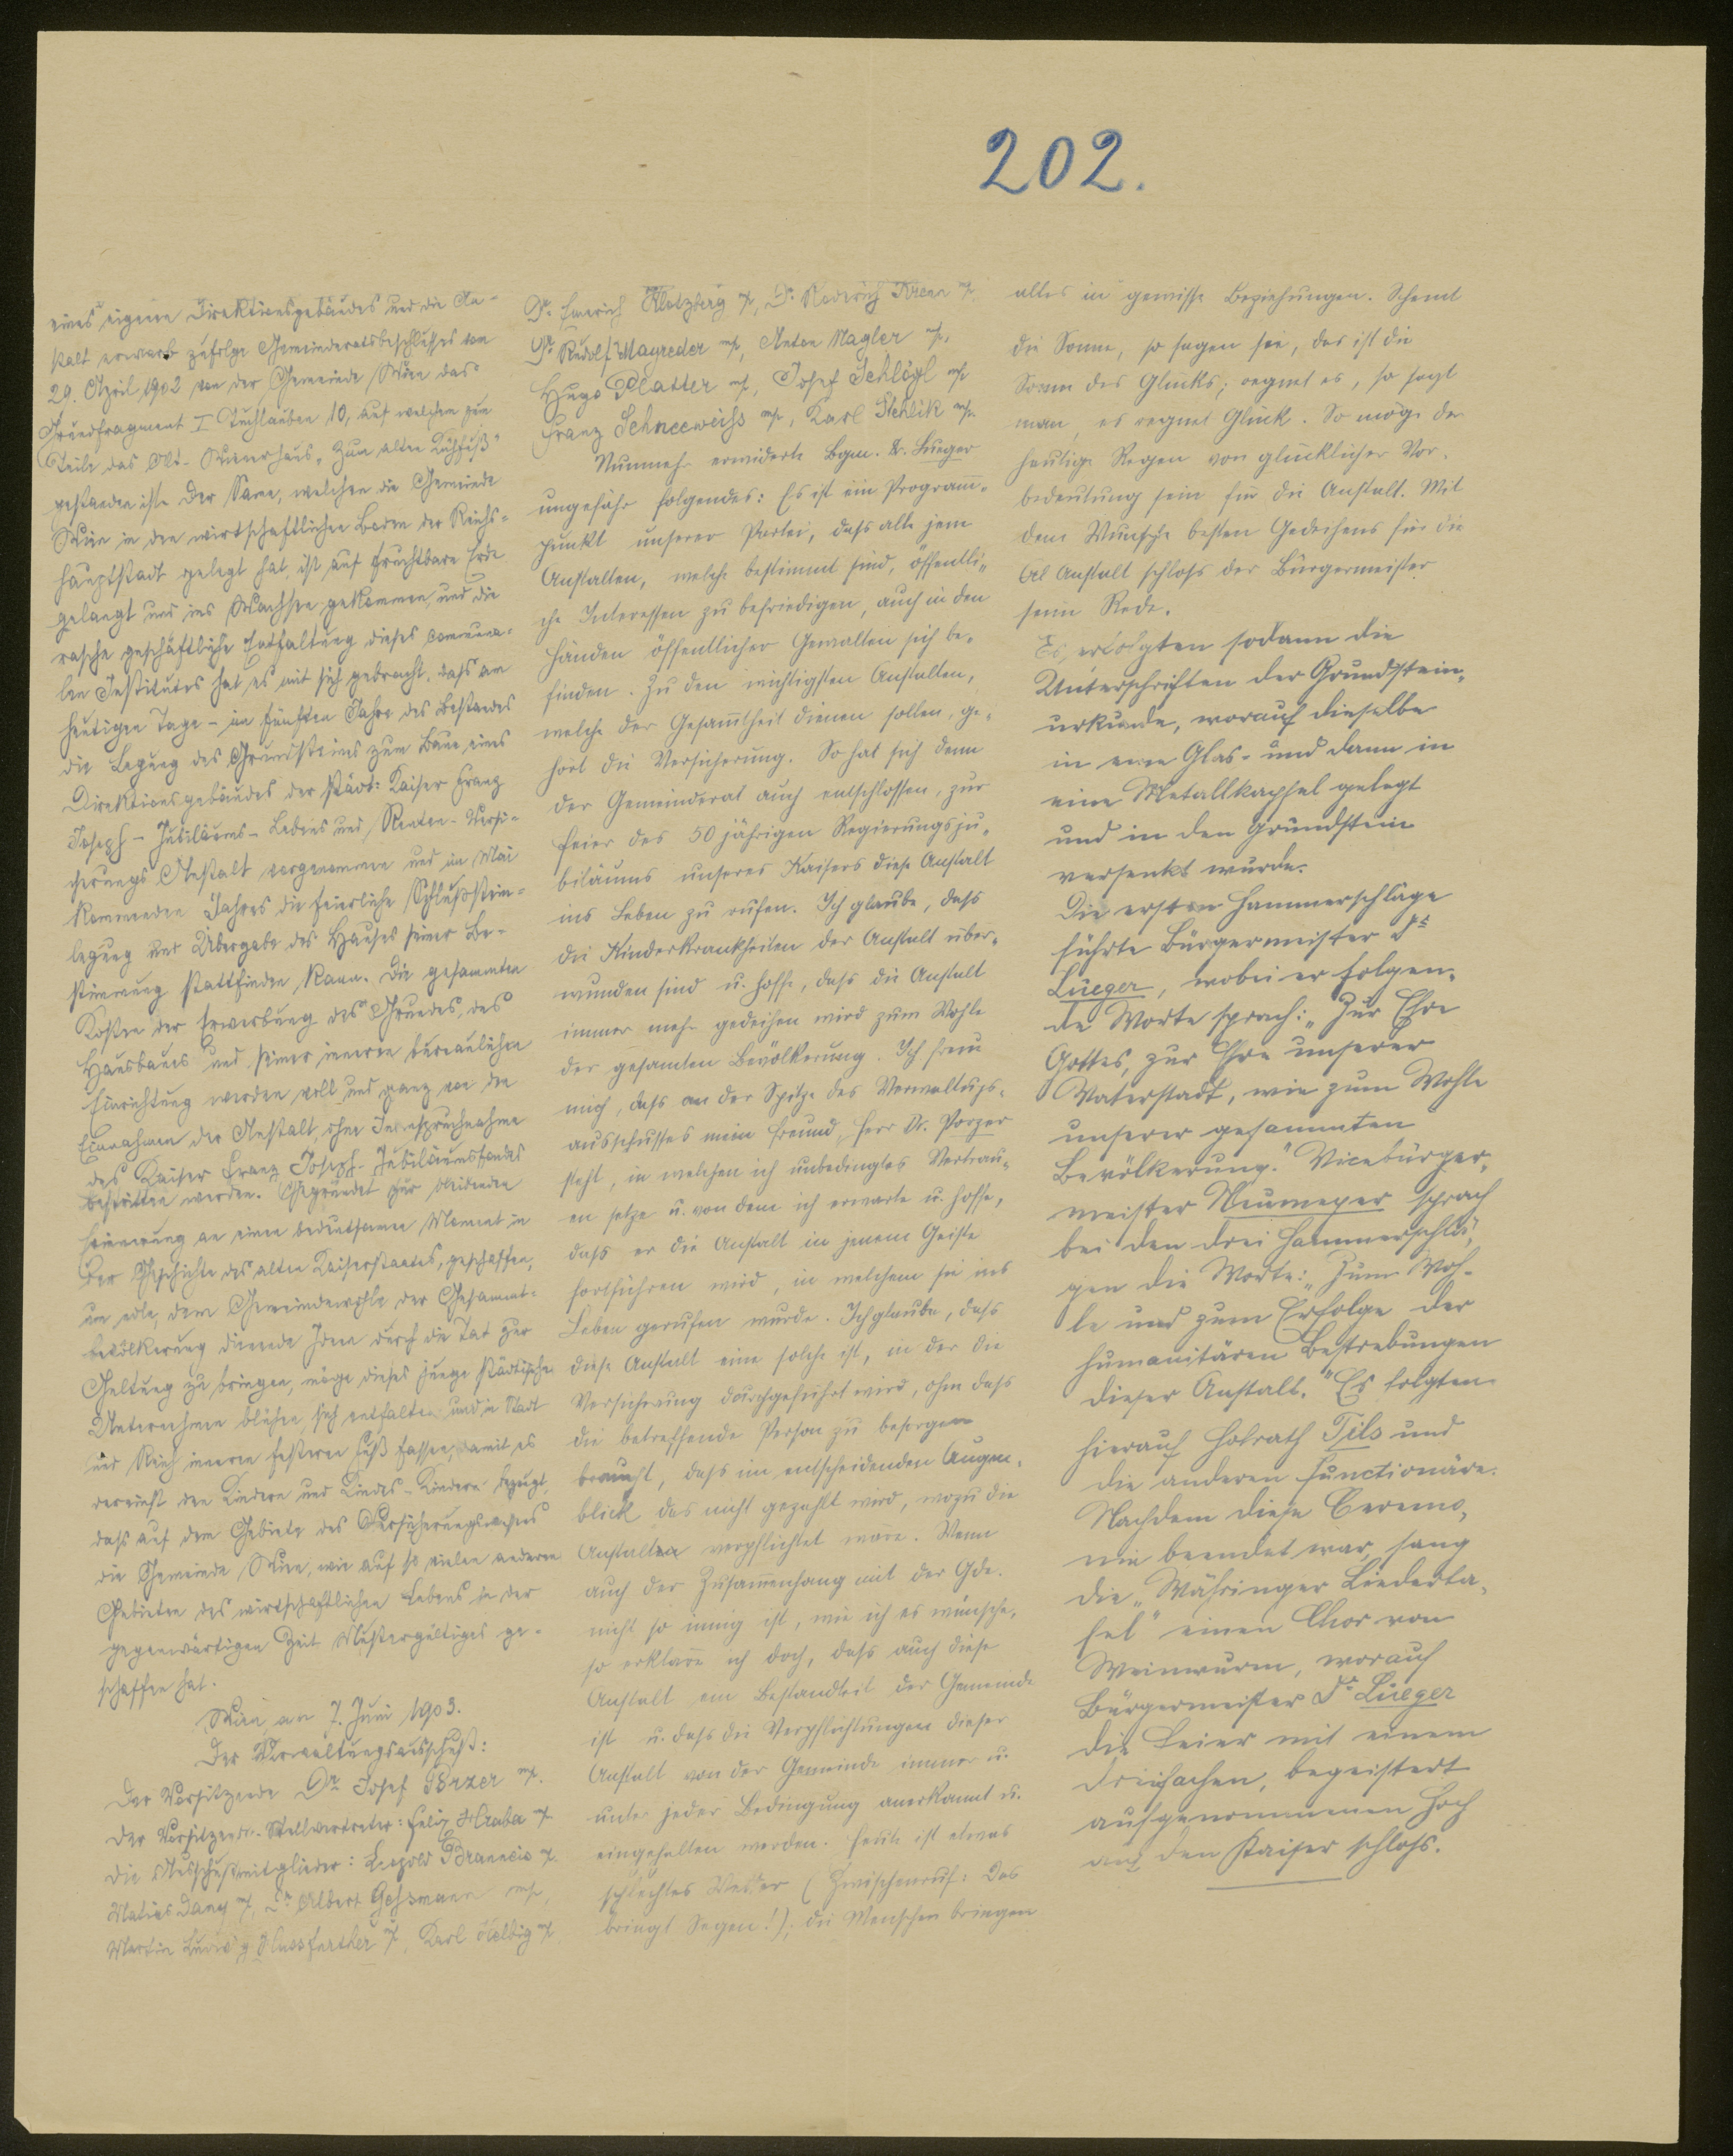 202.
eines eigenen Direktionsgebäudes und die An-
stalt erwarb zufolge Gemeinderatsbeschlusses vom
29. April 1902 von der Gemeinde Wien das
Grundfragment I Tuchlauben 10, auf welchem zum
Teile das Alt-Wienerhaus „Zum alten Kühfuß"
gestanden ist. Der Same, welchen die Gemeinde
Wien in den wirtschaftlichen Boden der Reichs-
hauptstadt gelegt hat, ist auf fruchtbare Erde
gelangt und ins Wachsen gekommen, und die
rasche geschäftliche Entfaltung dieses communa-
len Institutes hat es mit sich gebracht, dass am
heutigen Tage - im fünften Jahre des Bestandes
die Legung des Grundsteines zum Baue eines
Direktionsgebäudes der städt: Kaiser Franz
Joseph-Jubiläums-Lebens und Renten-Versi-
cherungs Anstalt vorgenommen und im Mai
kommenden Jahres die feierliche Schlußstein-
legung und Übergabe des Hauses seiner Be-
stimmung stattfinden kann. Die gesammten
Kosten der Erwerbung des Grundes, des
Hausbaues und seiner inneren bureaulichen
Einrichtung werden voll und ganz von den
Einnahmen der Anstalt, ohne Inanspruchnahme
des Kaiser Franz Joseph-Jubiläumsfondes
bestritten werden. Gegründet zur bleibenden
Erinnerung an einen bedeutsamen Moment in
der Geschichte des alten Kaiserstaates, geschaffen,
um edle, dem Gemeindewohle der Gesammt-
bevölkerung dienende Ideen durch die Tat zur
Geltung zu bringen, möge dieses junge städtische
Unternehmen blühen, sich entfalten und in Stadt
und Reich immer festeren Fuß fassen, damit es
dereinst den Kindern und Kindes-Kindern bezeugt,
dass auf dem Gebiete des Versicherungswesens
die Gemeinde Wien, wie auf so vielen anderen
Gebieten des wirtschaftlichen Lebens in der
gegenwärtigen Zeit Mustergültiges ge-
schaffen hat.
Wien am 7. Juni 1903.
Der Verwaltungsausschuß:
Der Vorsitzende Dr. Josef Porzer mp.
Der Vorsitzende-Stellvertreter: Felix Hraba mp.
Die Ausschußmitglieder: Leopold Brauneis mp.
Matias Dany mp, Dr. Albert Gessmann mp,
Martin Ludwig Hassfurther mp, Karl Helbig mp
Dr. Emerich Klotzberg mp, Dr. Roderich Krenn mp
Dr. Rudolf Mayreder mp, Anton Nagler mp,
Hugo Platter mp, Josef Schlögl mp
Franz Schneeweiss mp, Karl Stehlik mp.
Nunmehr erwiderte Bgm. Dr. Lueger
ungefähr folgendes: Es ist ein Programm-
punkt unserer Partei, dass alle jene
Anstalten, welche bestimmt sind, öffentli-
che Interessen zu befriedigen, auch in den
Händen öffentlicher Gewalten sich be-
finden. Zu den wichtigsten Anstalten,
welche der Gesammtheit dienen sollen, ge-
hört die Versicherung. So hat sich denn
der Gemeinderat auch entschlossen, zur
Feier des 50 jährigen Regierungsju-
biläums unseres Kaisers diese Anstalt
ins Leben zu rufen. Ich glaube, dass
die Kinderkrankheiten der Anstalt über-
wunden sind u. hoffe, dass die Anstalt
immer mehr gedeihen wird zum Wohle
der gesamten Bevölkerung. Ich freue
mich, dass an der Spitze des Verwaltungs-
ausschusses mein Freund, Herr Dr. Porzer
steht, in welchen ich unbedingtes Vertrau-
en setze u. von dem ich erwarte u. hoffe,
dass er die Anstalt in jenem Geiste
fortführen wird, in welchem sie ins
Leben gerufen wurde. Ich glaube, dass
diese Anstalt eine solche ist, in der die
Versicherung durchgeführt wird, ohne dass
die betreffende Person zu besorgen
braucht, dass im entscheidenden Augen-
blick das nicht gezahlt wird, wozu die
Anstalten verpflichtet wäre. Wenn
auch der Zusammenhang mit der Gde.
nicht so innig ist, wie ich es wünsche,
so erkläre ich doch, dass auch diese
Anstalt ein Bestandteil der Gemeinde
ist u. dass die Verpflichtungen dieser
Anstalt von der Gemeinde immer u.
unter jeder Bedingung anerkannt u.
eingehalten werden. Heute ist etwas
schlechtes Wetter (Zwischenruf: Das
bringt Segen!); die Menschen bringen
alles in gewisse Beziehungen. Scheint
die Sonne, so sagen sie, das ist die
Sonne des Glücks; regnet es, so sagt
man, es regnet Glück. So möge der
heutige Regen von glücklicher Vor-
bedeutung sein für die Anstalt. Mit
dem Wunsche besten Gedeihens für die
Anstalt schloss der Bürgermeister
seine Rede.
Es erfolgten sodann die
Unterschriften der Grundstein-
urkunde, worauf dieselbe
in eine Glas- und dann in
eine Metallkapsel gelegt
und in den Grundstein
versenkt wurde.
Die ersten Hammerschläge
führte Bürgermeister Dr.
Lueger, wobei er folgen-
de Worte sprach: „Zur Ehre
Gottes, zur Ehre unserer
Vaterstadt, wie zum Wohle
unserer gesammten
Bevölkerung." Vicebürger-
meister Neumayer sprach
bei den drei Hammerschlä-
gen die Worte: „Zum Woh-
le und zum Erfolge der
humanitären Bestrebungen
dieser Anstalt." Es folgten
hierauf Hofrath Tils und
die anderen Functionäre.
Nachdem diese Ceremo-
nie beendet war, sang
die „Währinger Liederta-
fel" einen Chor von
Weinwurm, worauf
Bürgermeister Dr. Lueger
die Feier mit einem
dreifachen, begeistert
aufgenommenen Hoch
auf den Kaiser schloss.